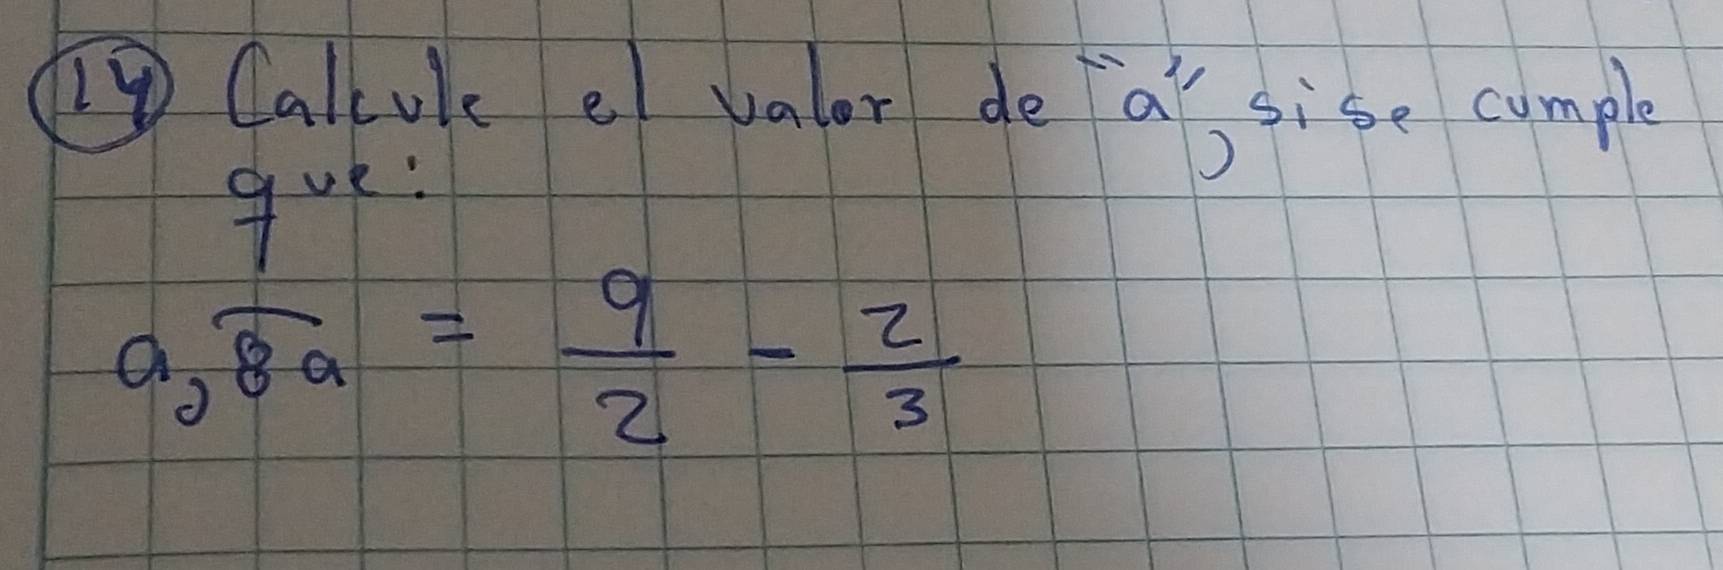 14 Calcule el valor de "a", si se cumple
que:
a,\overline{8}a = \frac{9}{2} - \frac{2}{3}